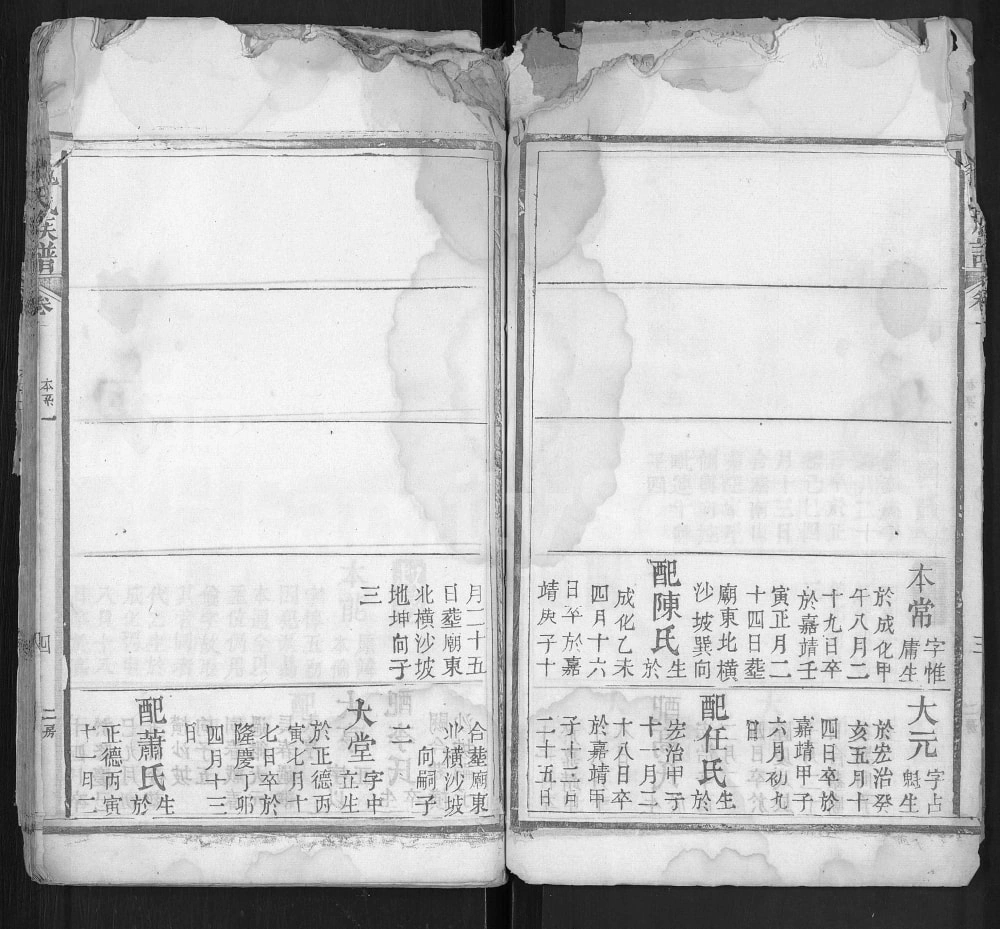 本常字惟庸生
於成化甲
午八月二
十九日卒
於嘉靖壬
寅正月二
十四日塟
廟東北橫
沙坡巽向
配陳氏生於
成化乙未
四月十六
日卒於嘉
靖庚子十
大元字占魁生
於宏治癸
亥五月十
四日卒於
嘉靖甲子
六月初九
日
配任氏生於
宏治甲子
十一月二
十八日卒
於嘉靖甲
子十二月
二十五日
三
月二十五
日塟廟東
北橫沙坡
地坤向子
三
合塟廟東
北橫沙坡
向嗣子
二
大堂字中立生
於正德丙
寅七月十
七日卒於
隆慶丁卯
四月十三
日
配蕭氏生於
正德丙寅
十一月二
氏族譜
卷
本系一
四
二房